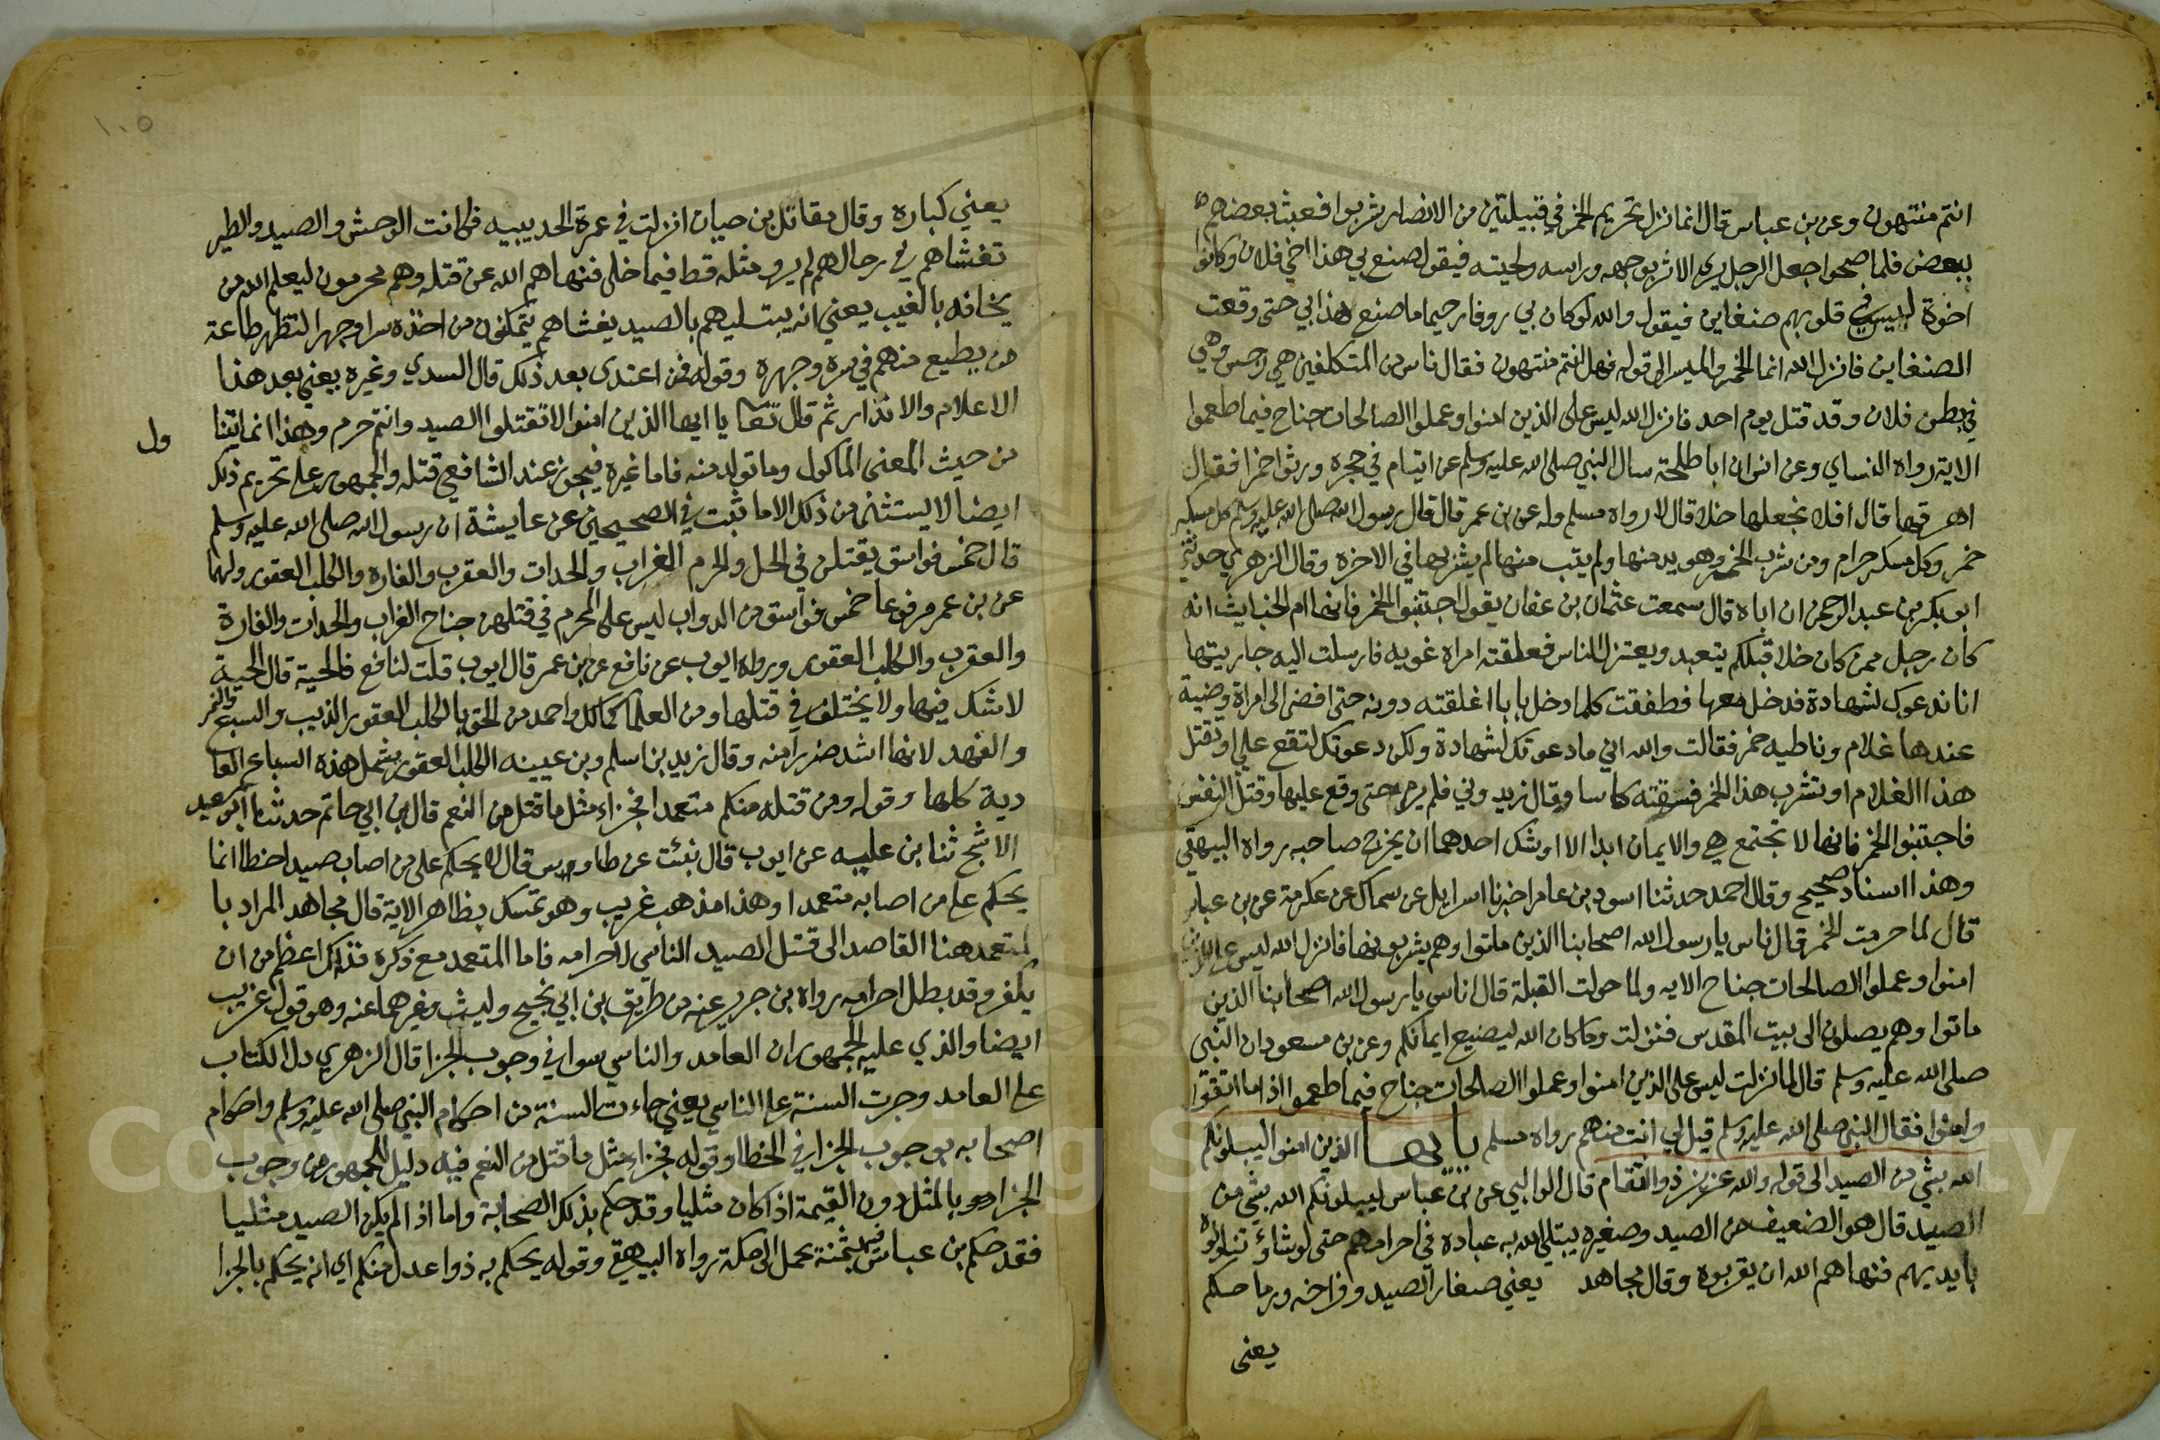 انتم منتهون وعن بن عباس قال انما نزل تحريم الخمر في قبيلتين من الانصار شربوا فعبث بعضهم
ببعض فلما صحوا جعل الرجل يرى الاثر بوجهه وراسه ولحيته فيقول صنع بي هذا اخي فلان وكانوا
اخوة ليس في قلوبهم ضغاين فيقول والله لو كان بي روفا رحيما ما صنع هذا بي حتى وقعت
الضغاين فانزل الله انما الخمر والميسر الى قوله فهل انتم منتهون فقال ناس من المتكلفين هي رجس وهي
في بطن فلان وقد قتل يوم احد فانزل الله ليس على الذين امنوا وعملوا الصالحات جناح فيما طعموا
الاية رواه النساي وعن انس ان ابا طلحة سال النبي صلى الله عليه وسلم عن ايتام في حجره ورثوا خمرا فقال
اهرقها قال افلا نجعلها خلا قال لا رواه مسلم وله عن بن عمر قال قال رسول الله صلى الله عليه وسلم كل مسكر
خمر وكل مسكر حرام ومن شرب الخمر وهو يدمنها ولم يتب منها لم يشربها في الاخرة وقال الزهري حدثني
ابو بكر بن عبد الرحمن ان اباه قال سمعت عثمان بن عفان يقول اجتنبوا الخمر فانها ام الخبايث انه
كان رجل ممن كان خلا قبلكم يتعبد ويعتزل الناس فعلقته امراه غويه فارسلت اليه جاريتها
انا ندعوك لشهادة فدخل معها فطفقت كلما دخل بابا اغلقته دونه حتى افضى الى امراة وضية
عندها غلام وباطيه خمر فقالت والله اني ما دعوتك لشهادة ولكن دعوتك لتقع علي او تقتل
هذا الغلام او تشرب هذا الخمر فسقته كاسا وقال زيدوني فلم يرم حتى وقع عليها وقتل النفس
فاجتنبوا الخمر فانها لا تجتمع هي والايمان ابدا الا اوشك احدهما ان يخرج صاحبه رواه البيهقي
وهذا اسناد صحيح وقال احمد حدثنا اسود بن عامر اخبرنا اسرايل عن سماك عن عكرمة عن بن عباس
قال لما حرمت الخمر قال ناس يا رسول الله اصحابنا الذين ماتوا وهم يشربونها فانزل الله ليس على الذين
امنوا وعملوا الصالحات جناح الايه ولما حولت القبلة قال اناس يا رسول الله اصحابنا الذين
ماتوا وهم يصلون الى بيت المقدس فنزلت وما كان الله ليضيع ايمانكم وعن بن مسعود ان النبي
صلى الله عليه وسلم قال لما نزلت ليس على الذين امنوا وعملوا الصالحات جناح فيما طعموا اذا ما اتقوا
وامنوا فقال النبي صلى الله عليه وسلم قيل لي انت منهم رواه مسلم يا ايها الذين امنوا ليبلونكم
الله بشي من الصيد الى قوله والله عزيز ذو انتقام قال الوالبي عن بن عباس ليبلونكم الله بشي من
الصيد قال هو الضعيف من الصيد وصغيره يبتلي الله به عباده في احرامهم حتى لو شاؤ تناولوه
بايديهم فنهاهم الله ان يقربوه وقال مجاهد يعني صغار الصيد وفراخه ورماحكم
يعنى
١٠٥
يعني كباره وقال مقاتل بن حيان انزلت في عمرة الحديبيه فكانت الوحش والصيد والطير
تغشاهم في رحالهم لم يرو مثله قط فيما خلى فنهاهم الله عن قتله وهم محرمون ليعلم الله من
يخافه بالغيب يعني انه يبتليهم بالصيد يغشاهم يتمكنون من اخذه سرا وجهرا لتظهر طاعة
من يطيع منهم في سره وجهره وقوله فمن اعتدى بعد ذلك قال السدي وغيره يعني بعد هذا
الاعلام والانذار ثم قال تعا يا ايها الذين امنوا لا تقتلوا الصيد وانتم حرم وهذا انما يتنا
ول
من حيث المعنى الماكول وما تولد منه فاما غيره فيجوز عند الشافعي قتله والجمهور على تحريم ذلك
ايضا لا يستثنى من ذلك الا ما ثبت في الصحيحين عن عايشة ان رسول الله صلى الله عليه وسلم
قال خمس فواسق يقتلن في الحل والحرم الغراب والحدات والعقرب والفاره والكلب العقور ولهما
عن بن عمر مرفوعا خمس فواسق من الدواب ليس على المحرم في قتلهن جناح الغراب والحدات والفارة
والعقرب والكلب العقور ورواه ايوب عن نافع عن بن عمر قال ايوب قلت لنافع فالحية قال الحية
لا شك فيها ولا يختلف في قتلها ومن العلما كمالك واحمد من الحق بالكلب العقور الذيب والسبع والنمر
والفهد لانها اشد ضررا منه وقال زيد بن اسلم وبن عيينه الكلب العقور يشمل هذه السباع العا
دية كلها وقوله ومن قتله منكم متعمدا فجزاء مثل ما قتل من النعم قال بن ابي حاتم حدثنا ابو سعيد
الاشج ثنا بن عليه عن ايوب قال نبئت عن طاووس قال لا يحكم على من اصاب صيد اخطا انما
يحكم على من اصابه متعمدا وهذا مذهب غريب وهو تمسك بظاهر الاية قال مجاهد المراد با
لمتعمد هنا القاصد الى قتل الصيد الناسى لاحرامه فاما المتعمد مع ذكره فذلك اعظم من ان
يكفر وقد بطل احرامه رواه بن جرير عنه من طريق بن ابي نجيح وليث وغيرهما عنه وهو قول غريب
ايضا والذي عليه الجمهور ان العامد والناسي سوا في وجوب الجزا قال الزهري دل الكتاب
على العامد وجرت السنة على الناسي يعني جاءت السنة من احكام النبي صلى الله عليه وسلم واحكام
اصحابه بوجوب الجزا في الخطا وقوله فجزاء مثل ما قتل من النعم فيه دليل للجمهور من وجوب
الجزا وبالمثل دون القيمة اذا كان مثليا وقد حكم بذلك الصحابة واما اذا لم يكن الصيد مثليا
فقد حكم بن عباس فيه بثمنة يحمل الى مكة رواه البيهقي وقوله يحكم به ذوا عدل منكم اي انه يحكم بالجزا